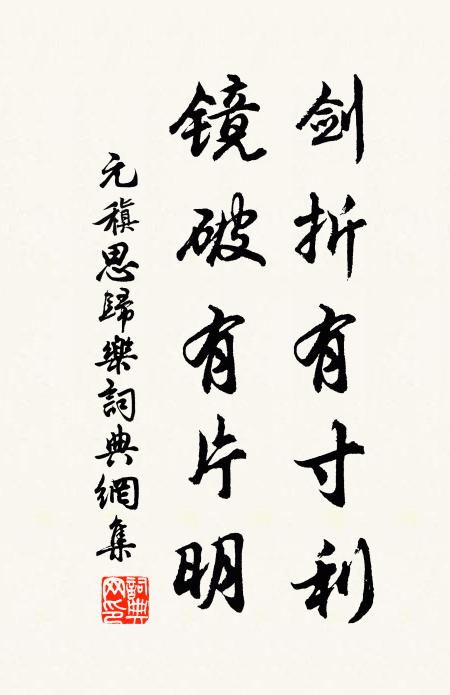 剑折有寸利
镜破有片明
元稹思歸樂詞典網集
詞典网印